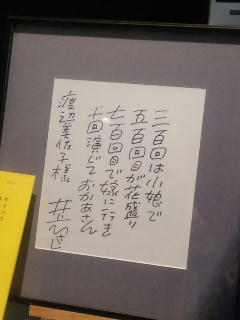 三百回は小娘で
五百回目が花盛り
七百回目で嫁に行き
千回演じておかあさん
渡辺美佐子様　井上ひさし